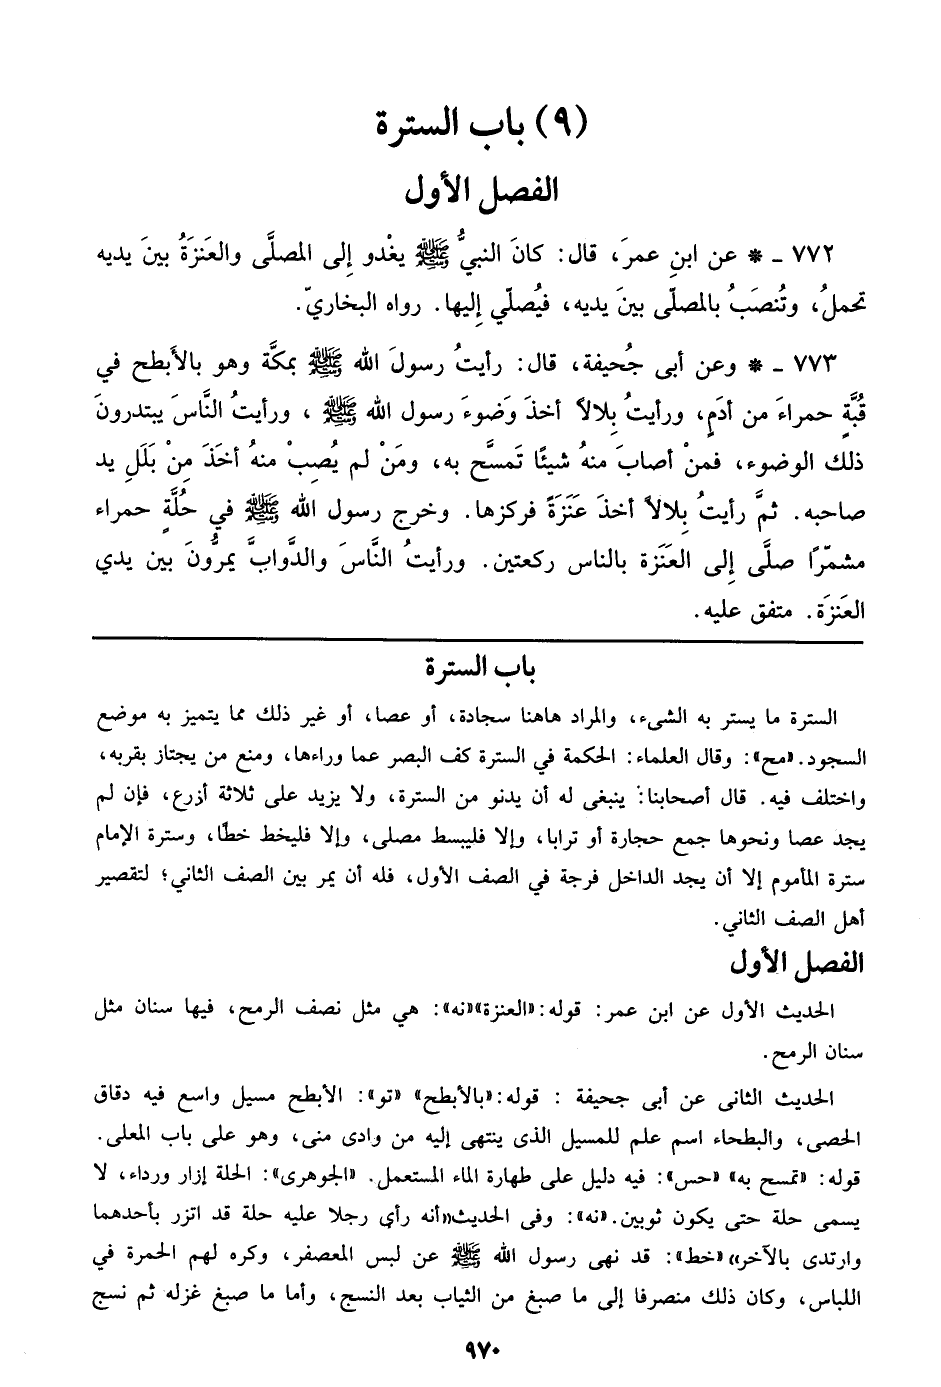 (٩) باب السترة
الفصل الأول
٧٧٢ ـ * عن ابنِ عمرَ، قال: كانَ النبيُّ ﷺ يغْدو إِلى المصلَّى والعَنزَةُ بينَ يديه
تحملُ، وتُنصَبُ بالمصلّى بينَ يديه، فيُصلّي إِليها. رواه البخاريّ.
٧٧٣ ـ * وعن أبى جُحيفة، قال: رأيتُ رسولَ الله ﷺ بمكَّة وهو بالأَبطح في
قُبَّةٍ حمراءَ من أدَمٍ، ورأيتُ بِلالاً أخذَ وَضوءَ رسول الله ﷺ ، ورأيتُ النَّاسَ يبتدرونَ
ذلك الوضوء، فمنْ أصابَ منهُ شيئًا تَمسَّح به، ومَنْ لم يُصِبْ منهُ أخَذَ مِنْ بَلَلِ يد
صاحبه. ثمَّ رأيتُ بِلالاً أخذَ عَنَزَةً فركزها. وخرج رسول الله ﷺ في حُلَّةٍ حمراء
مشمّرًا صلَّى إِلى العَنَزة بالناس ركعتين. ورأيتُ النَّاسَ والدَّوابَّ يمرُّونَ بين يدي
العَنزَة. متفق عليه.
باب السترة
السترة ما يستر به الشىء، والمراد هاهنا سجادة، أو عصا، أو غير ذلك مما يتميز به موضع
السجود.«مح»: وقال العلماء: الحكمة في السترة كف البصر عما وراءها، ومنع من يجتاز بقربه،
واختلف فيه. قال أصحابنا: ينبغى له أن يدنو من السترة، ولا يزيد على ثلاثة أذرع، فإن لم
يجد عصا ونحوها جمع حجارة أو ترابا، وإلا فليبسط مصلى، وإلا فليخط خطًا، وسترة الإمام
سترة المأموم إلا أن يجد الداخل فرجة في الصف الأول، فله أن يمر بين الصف الثاني؛ لتقصير
أهل الصف الثاني.
الفصل الأول
الحديث الأول عن ابن عمر: قوله:«العنزة»«نه»: هي مثل نصف الرمح، فيها سنان مثل
سنان الرمح.
الحديث الثانى عن أبى جحيفة : قوله:«بالأبطح» «تو»: الأبطح مسيل واسع فيه دقاق
الحصى، والبطحاء اسم علم للمسيل الذى ينتهى إليه من وادى منى، وهو على باب المعلى.
قوله: «تمسح به» «حس»: فيه دليل على طهارة الماء المستعمل. «الجوهرى»: الحلة إزار ورداء، لا
يسمى حلة حتى يكون ثوبين.«نه»: وفى الحديث«أنه رأي رجلا عليه حلة قد اتزر بأحدهما
وارتدى بالآخر»«خط»: قد نهى رسول الله ﷺ عن لبس المعصفر، وكره لهم الحمرة في
اللباس، وكان ذلك منصرفا إلى ما صبغ من الثياب بعد النسج، وأما ما صبغ غزله ثم نسج
٩٧٠